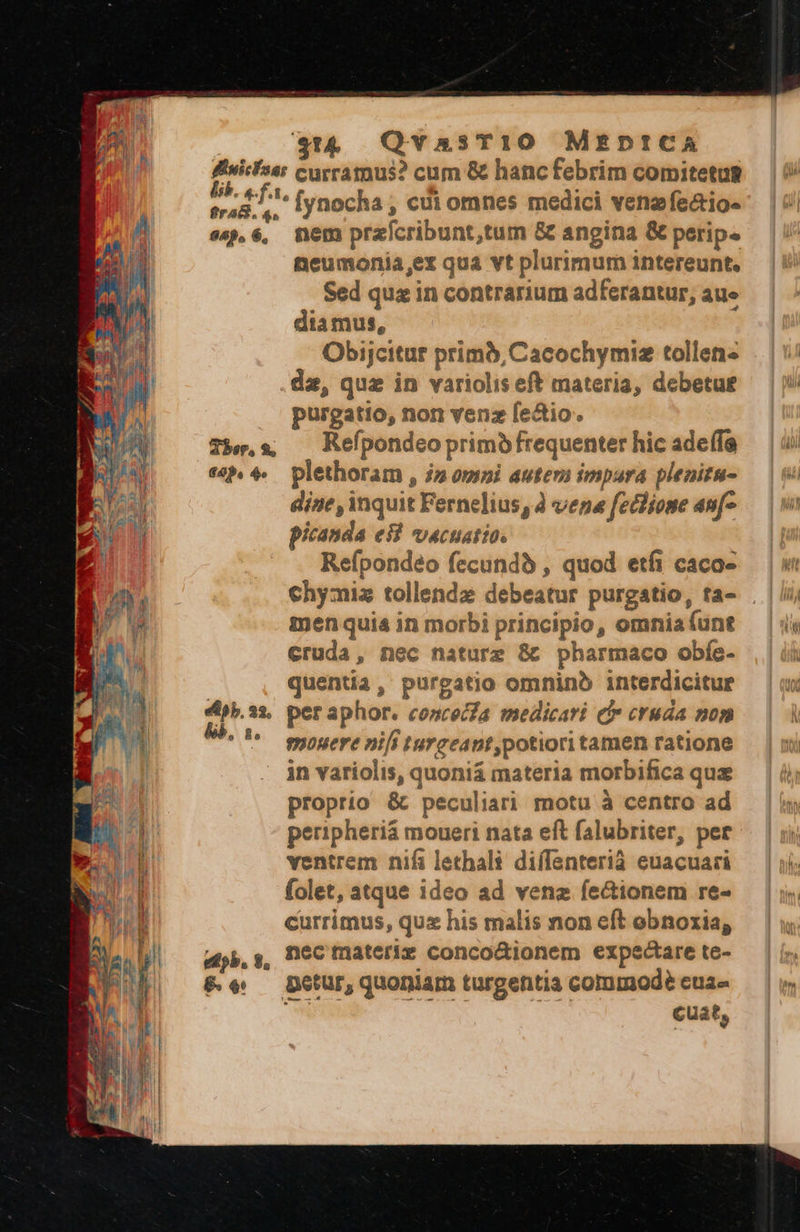 314 QVÆSTIO MEDICA
Auicēnæ curramus? cum & hanc febrim comitetur
lib. 4. f. 1. ſynocha, cui omnes medici venæ ſectio-
tract. 4.
cap. 6. nem præſcribunt, tum & angina & perip-
neumonia, ex qua vt plurimum intereunt.
Sed quæ in contrarium adferantur, au-
diamus,
Obijcitur primò, Cacochymiæ tollen-
dæ, quæ in variolis eſt materia, debetur
purgatio, non venæ ſectio.
Ther. 2. Reſpondeo primò frequenter hic adeſſe
cap. 4. plethoram, in omni autem impura plenitu-
dine, inquit Fernelius, à venæ ſectione auſ-
picanda eſt vacuatio.
Reſpondeo ſecundò, quod etſi caco-
chymiæ tollendæ debeatur purgatio, ta-
men quia in morbi principio, omnia ſunt
cruda, nec naturæ & pharmaco obſe-
quentia, purgatio omninò interdicitur
Aph. 22. per aphor. concocta medicari & cruda non
lib. 1. mouere niſi turgeant, potiori tamen ratione
in variolis, quoniā materia morbifica quæ
proprio & peculiari motu à centro ad
peripheriā moueri nata eſt ſalubriter, per
ventrem niſi lethali diſſenteriâ euacuari
ſolet, atque ideo ad venæ ſectionem re-
currimus, quæ his malis non eſt obnoxia,
Aph. 9. nec materiæ concoctionem expectare te-
netur, quoniam turgentia commodè eua-
cuat,